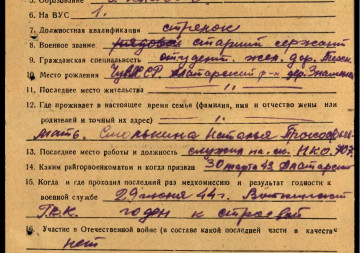 5. Образование
6. На ВУС 1.
7. Должностная квалификация стрелок
8. Военное звание рядовой старший сержант
9. Гражданская специальность студент жел. дор. техн.
10. Место рождения ЧувАССР Алатырский р-н дер.
11. Последнее место жительства —"—
12. Где проживает в настоящее время семья (фамилия, имя и отчество жены или
родителей и точный их адрес) —"—
мать. Наталья
13. Последнее место работы и должность служил на НКО.
14. Каким райгорвоенкоматом и когда призван 30 марта 43 Алатырский
15. Когда и где проходил последний раз медкомиссию и результат годности к
военной службе 29 июня 44 г.
годен к строевой
16. Участие в Отечественной войне (в составе какой последней части в качестве
нет